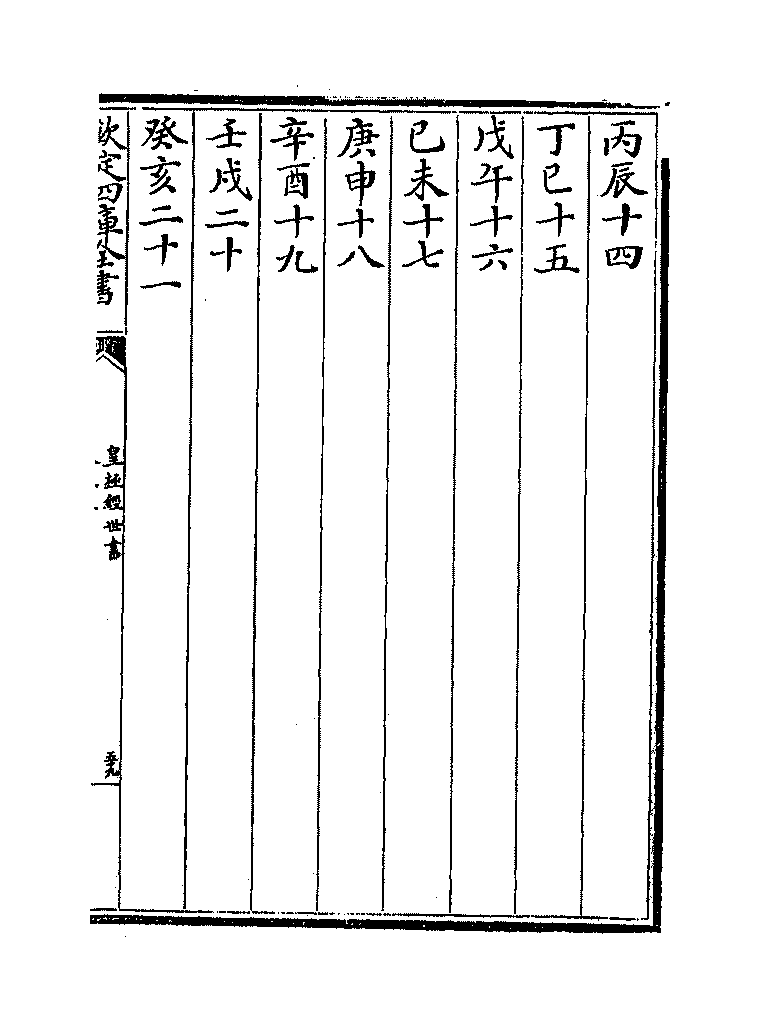 丙辰十四
丁巳十五
戊午十六
己未十七
庚申十八
辛酉十九
壬戌二十
癸亥二十一
欽定四庫全書
皇極經世書